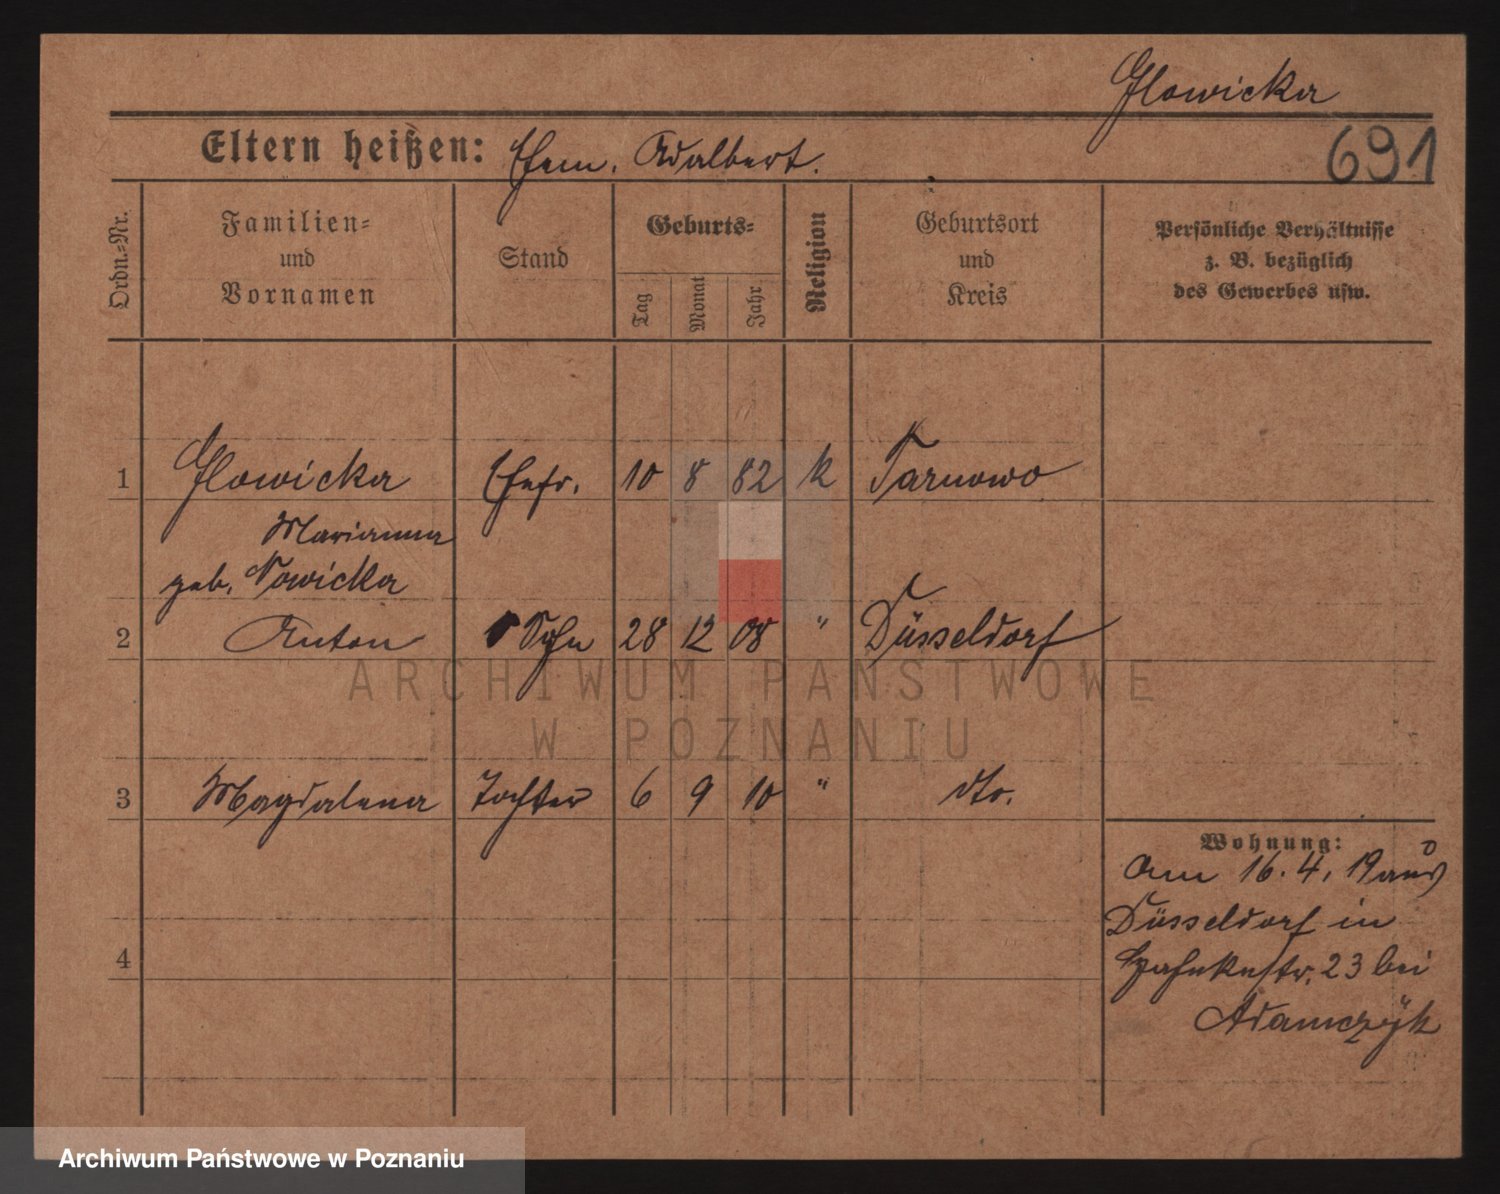 Glowicka
691
Eltern heißen: Ehem. Adalbert.
Ordn.-Nr.
Familien-
und
Vornamen
Stand
Geburts-
Tag
Monat
Jahr
Religion
Geburtsort
und
Kreis
Persönliche Verhältnisse
z. B. bezüglich
des Gewerbes usw.
1 Glowicka Ehefr. 10 8 82 k Tarnowo
Marianna
geb. Nowicka
2 Anton Sohn 28 12 08 " Düsseldorf
ARCHIWUM PAŃSTWOWE
W POZNANIU
3 Magdalena Tochter 6 9 10 " dto.
Wohnung:
Am 16.4.19 aus
Düsseldorf in
23 bei
Adamczyk
4
Archiwum Państwowe w Poznaniu